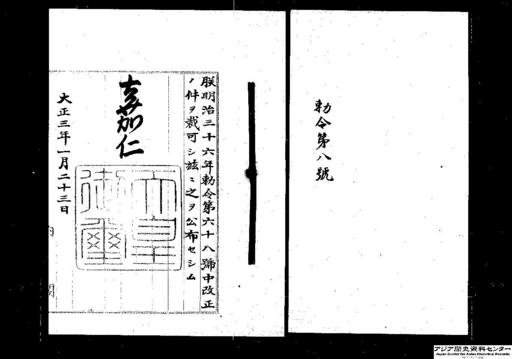 勅令第八號
朕明治三十六年勅令第六十八號中改正
ノ件ヲ裁可シ茲ニ之ヲ公布セシム
嘉仁
天皇御璽
大正三年一月二十三日
内閣
アジア歴史資料センター
Japan Center for Asian Historical Records